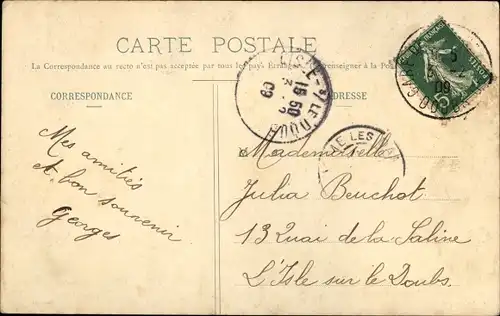 CARTE POSTALE
La Correspondance au recto n'est pas acceptée par tous les pays Etrangers. Se renseigner à la Poste
CORRESPONDANCE
ADRESSE
15 50
09
09
Mes amitiés
et bon souvenir
Georges
Mademoiselle
Julia Beuchot
13 Quai de la Saline
L'Isle sur le Doubs.